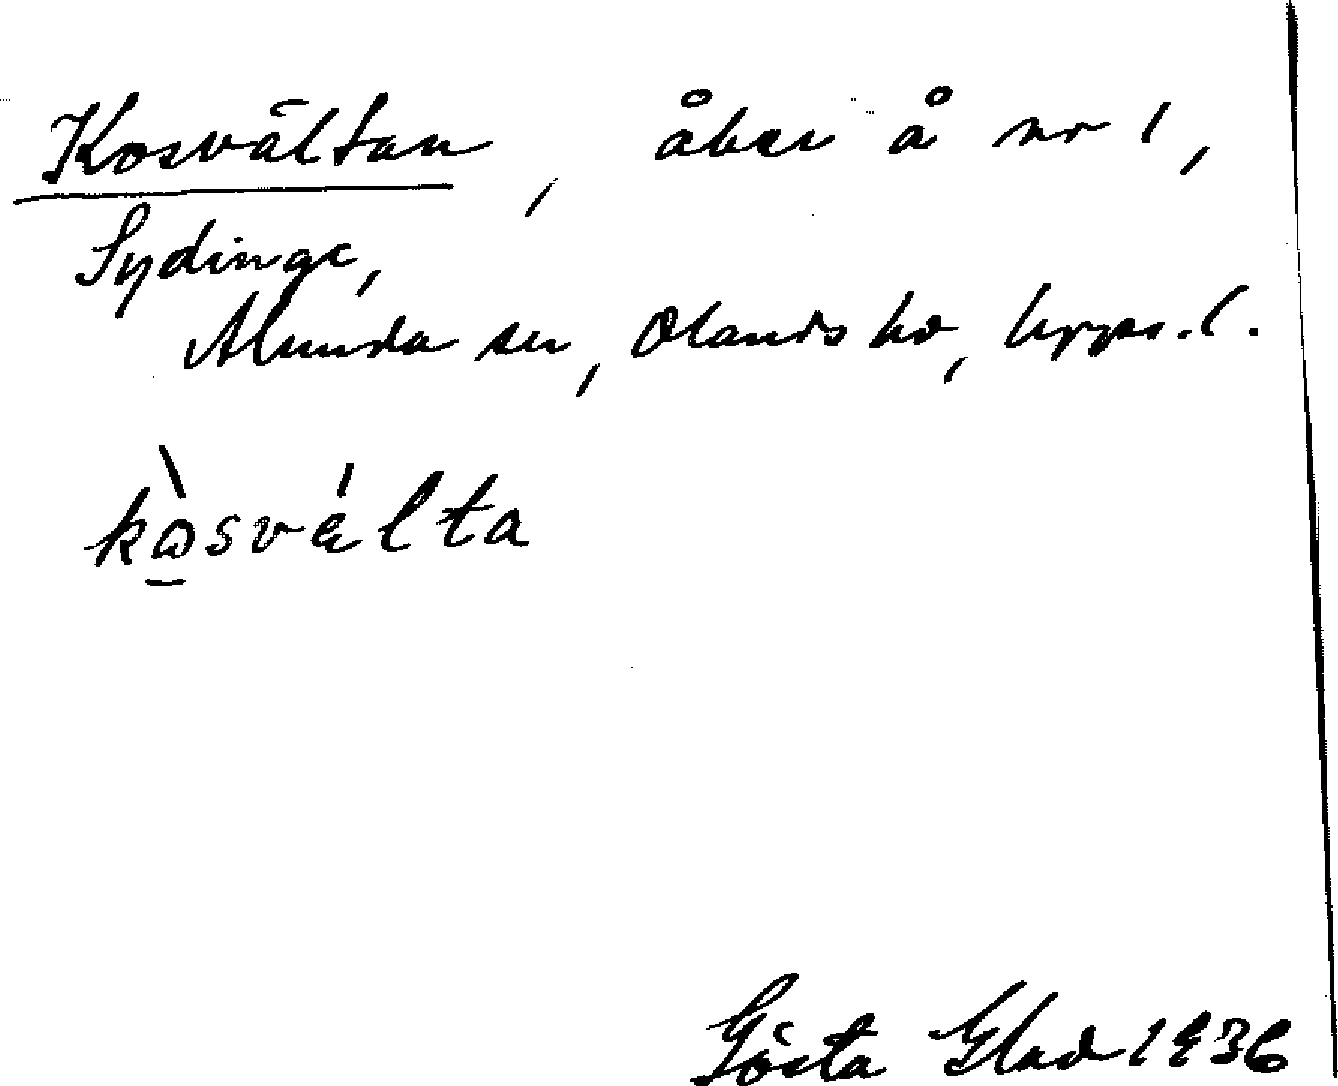 Kosvältan, åker å nr 1,
Sydinge,
Alunda sn, Olands hd, Upps. l.
kòsvá̈lta
Gösta Glad 1936